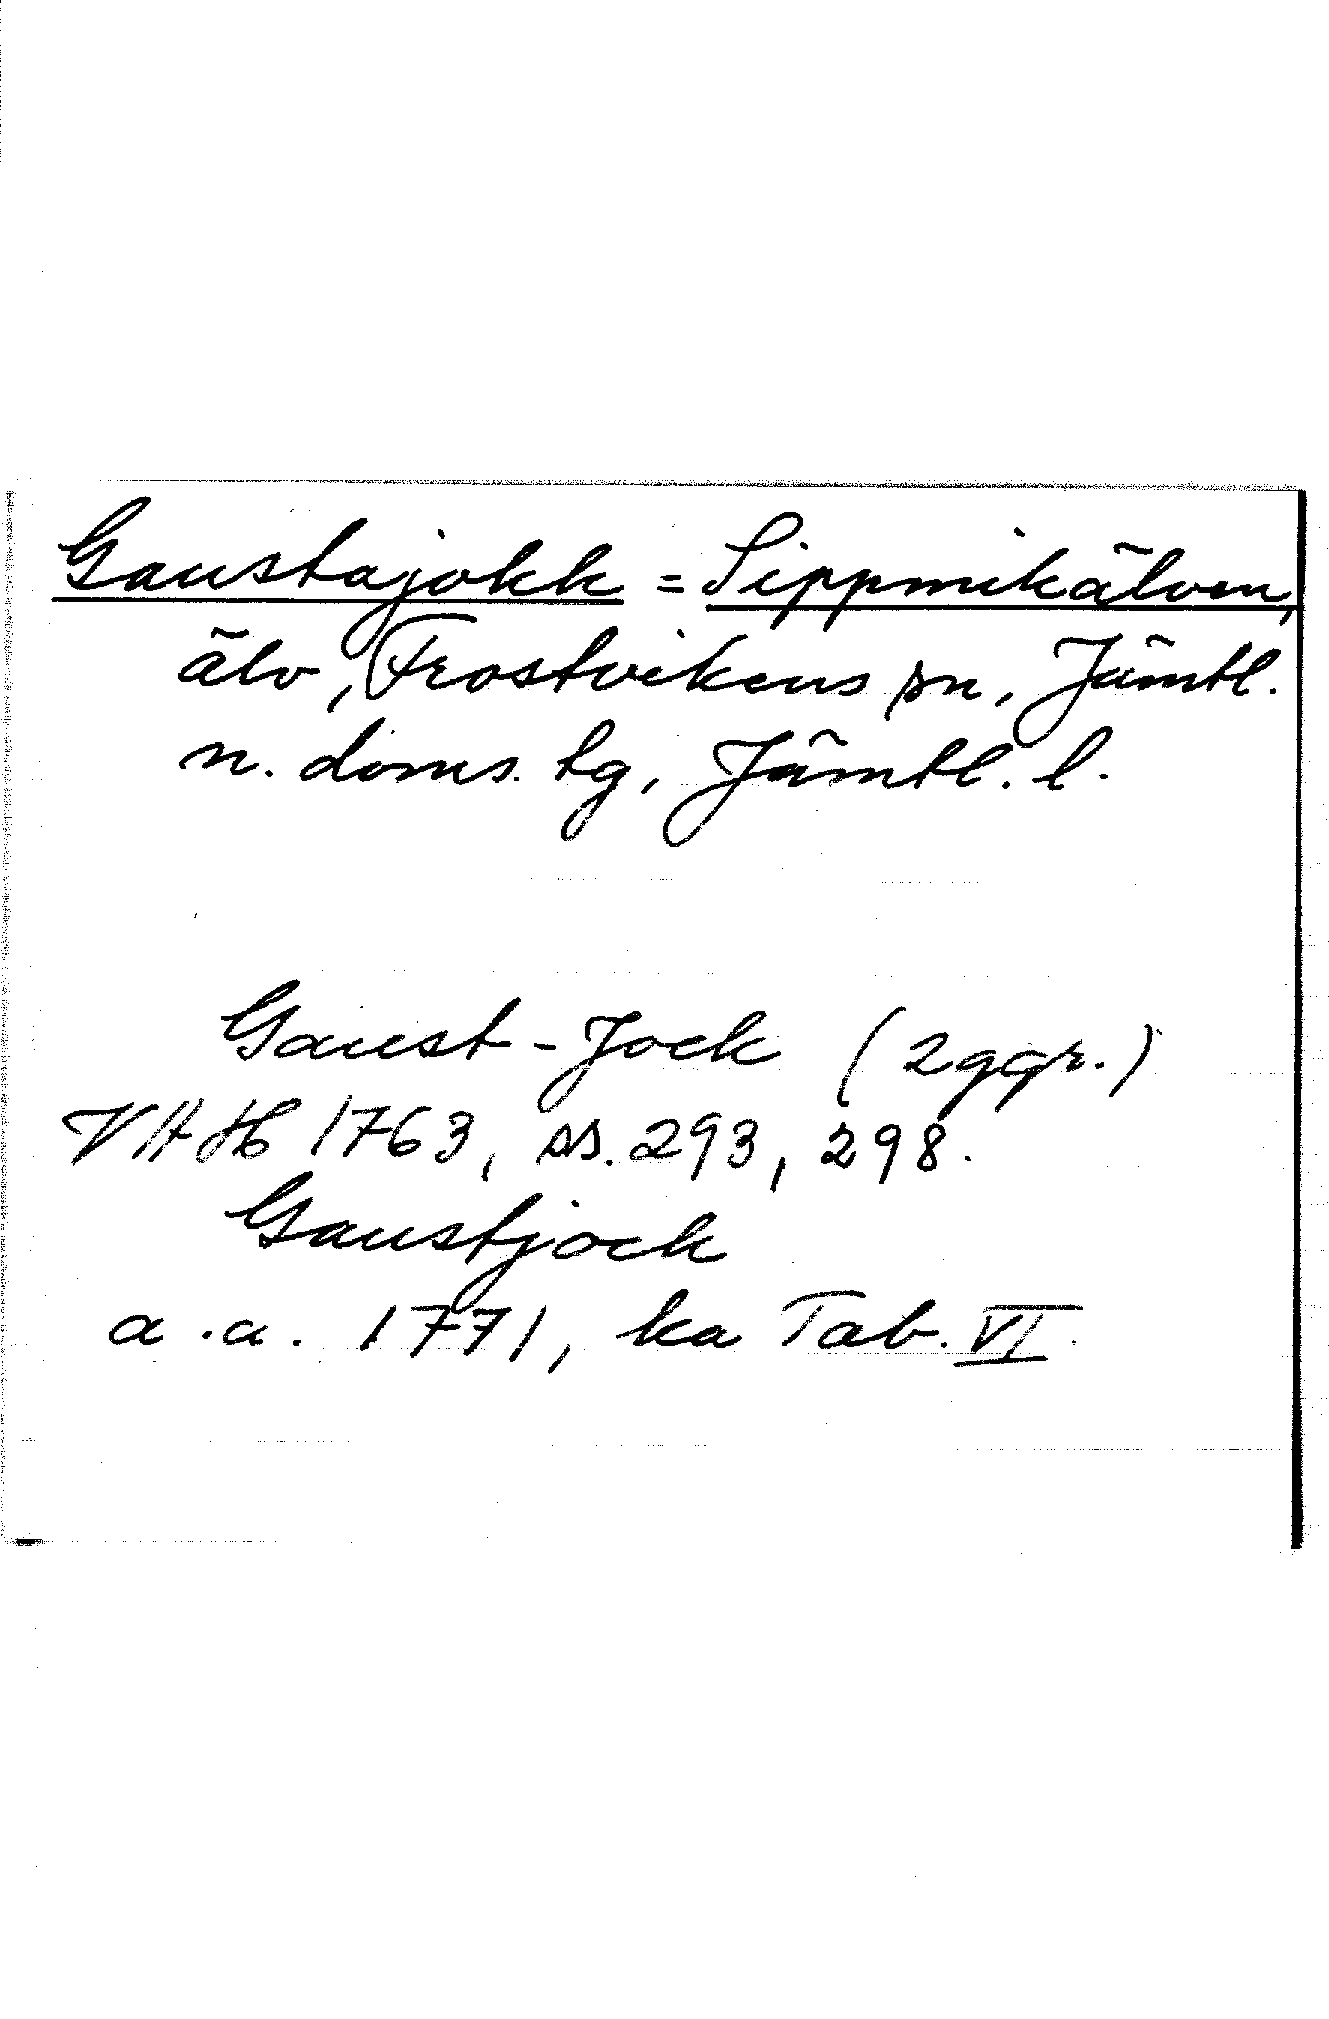 Gaustajokk = Sippmikälven,
älv, Frostvikens sn, Jämtl.
n. doms. tg, Jämtl. l.
Gaust-Jock (2 ggr.)
VAH 1763, ss. 293, 298.
Gaustjock
a.a. 1771, ka Tab. VI.